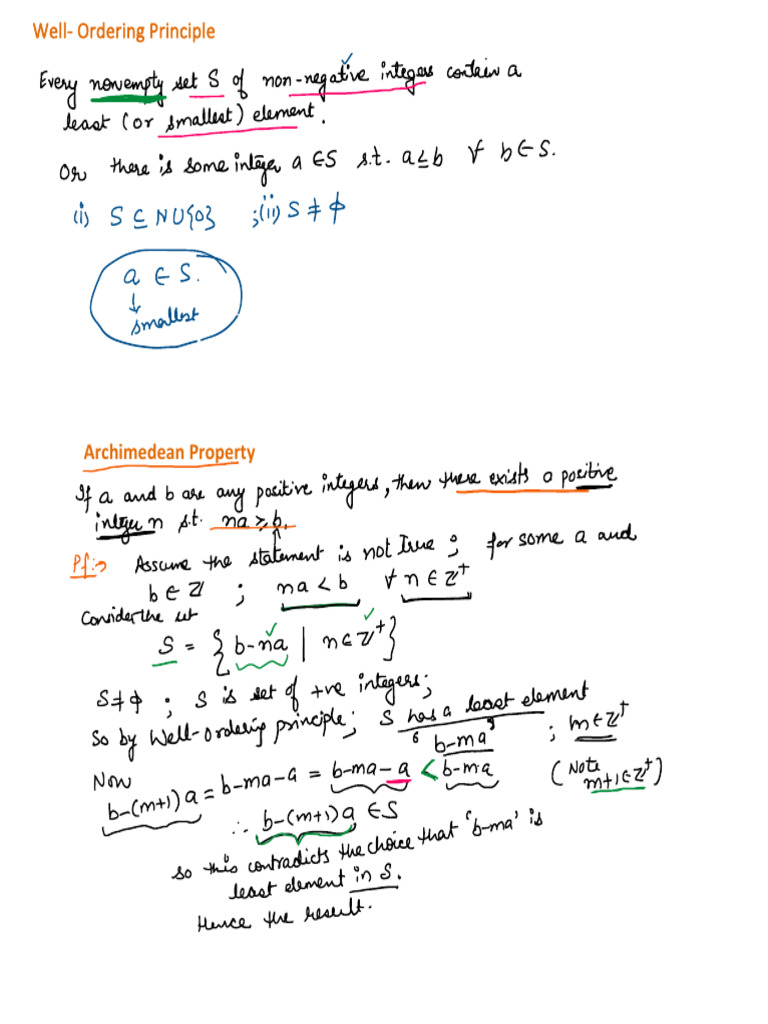 Well- Ordering Principle
Every nonempty set S of non-negative integers contain a
least (or smallest) element.
Or there is some integer a ∈ S s.t. a ≤ b ∀ b ∈ S.
(i) S ⊆ N∪{0} ; (ii) S ≠ ϕ
a ∈ S.
↓
smallest
Archimedean Property
If a and b are any positive integers, then there exists a positive
integer n s.t. na ≥ b.
Pf:→ Assume the statement is not True ; for some a and
b ∈ ℤ ; na < b ∀ n ∈ ℤ⁺
Consider the set
S = { b-na | n ∈ ℤ⁺ }
S ≠ ϕ ; S is set of +ve integers;
So by Well-ordering principle; S has a least element
'b-ma' ; m ∈ ℤ⁺
Now b-(m+1)a = b-ma-a = b-ma-a < b-ma (Note m+1 ∈ ℤ⁺)
∴ b-(m+1)a ∈ S
So this contradicts the choice that 'b-ma' is
least element in S.
Hence the result.